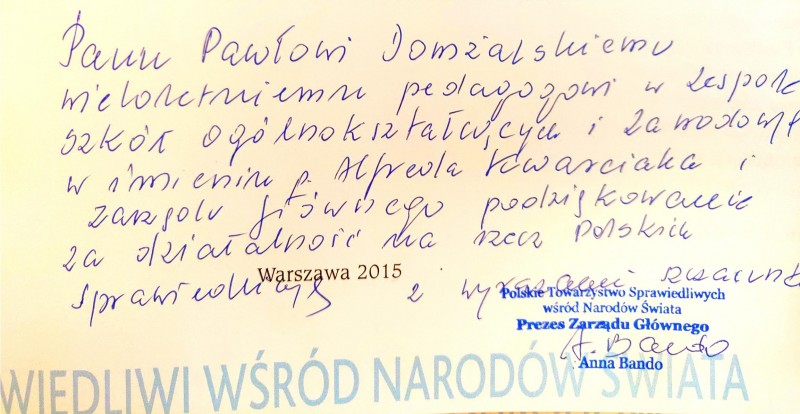 Panu Pawłowi Domżalskiemu
wieloletniemu pedagogowi w Zespole
szkół ogólnokształcących i zawodowych
w imieniu p. Alfreda Kwarciaka i
zarządu głównego podziękowanie
za działalność na rzecz Polskich
Warszawa 2015
sprawiedliwych z wyrazami szacunku
Polskie Towarzystwo Sprawiedliwych
wśród Narodów Świata
Prezes Zarządu Głównego
A. Bando
Anna Bando
WIEDLIWI WŚRÓD NARODÓW ŚWIATA